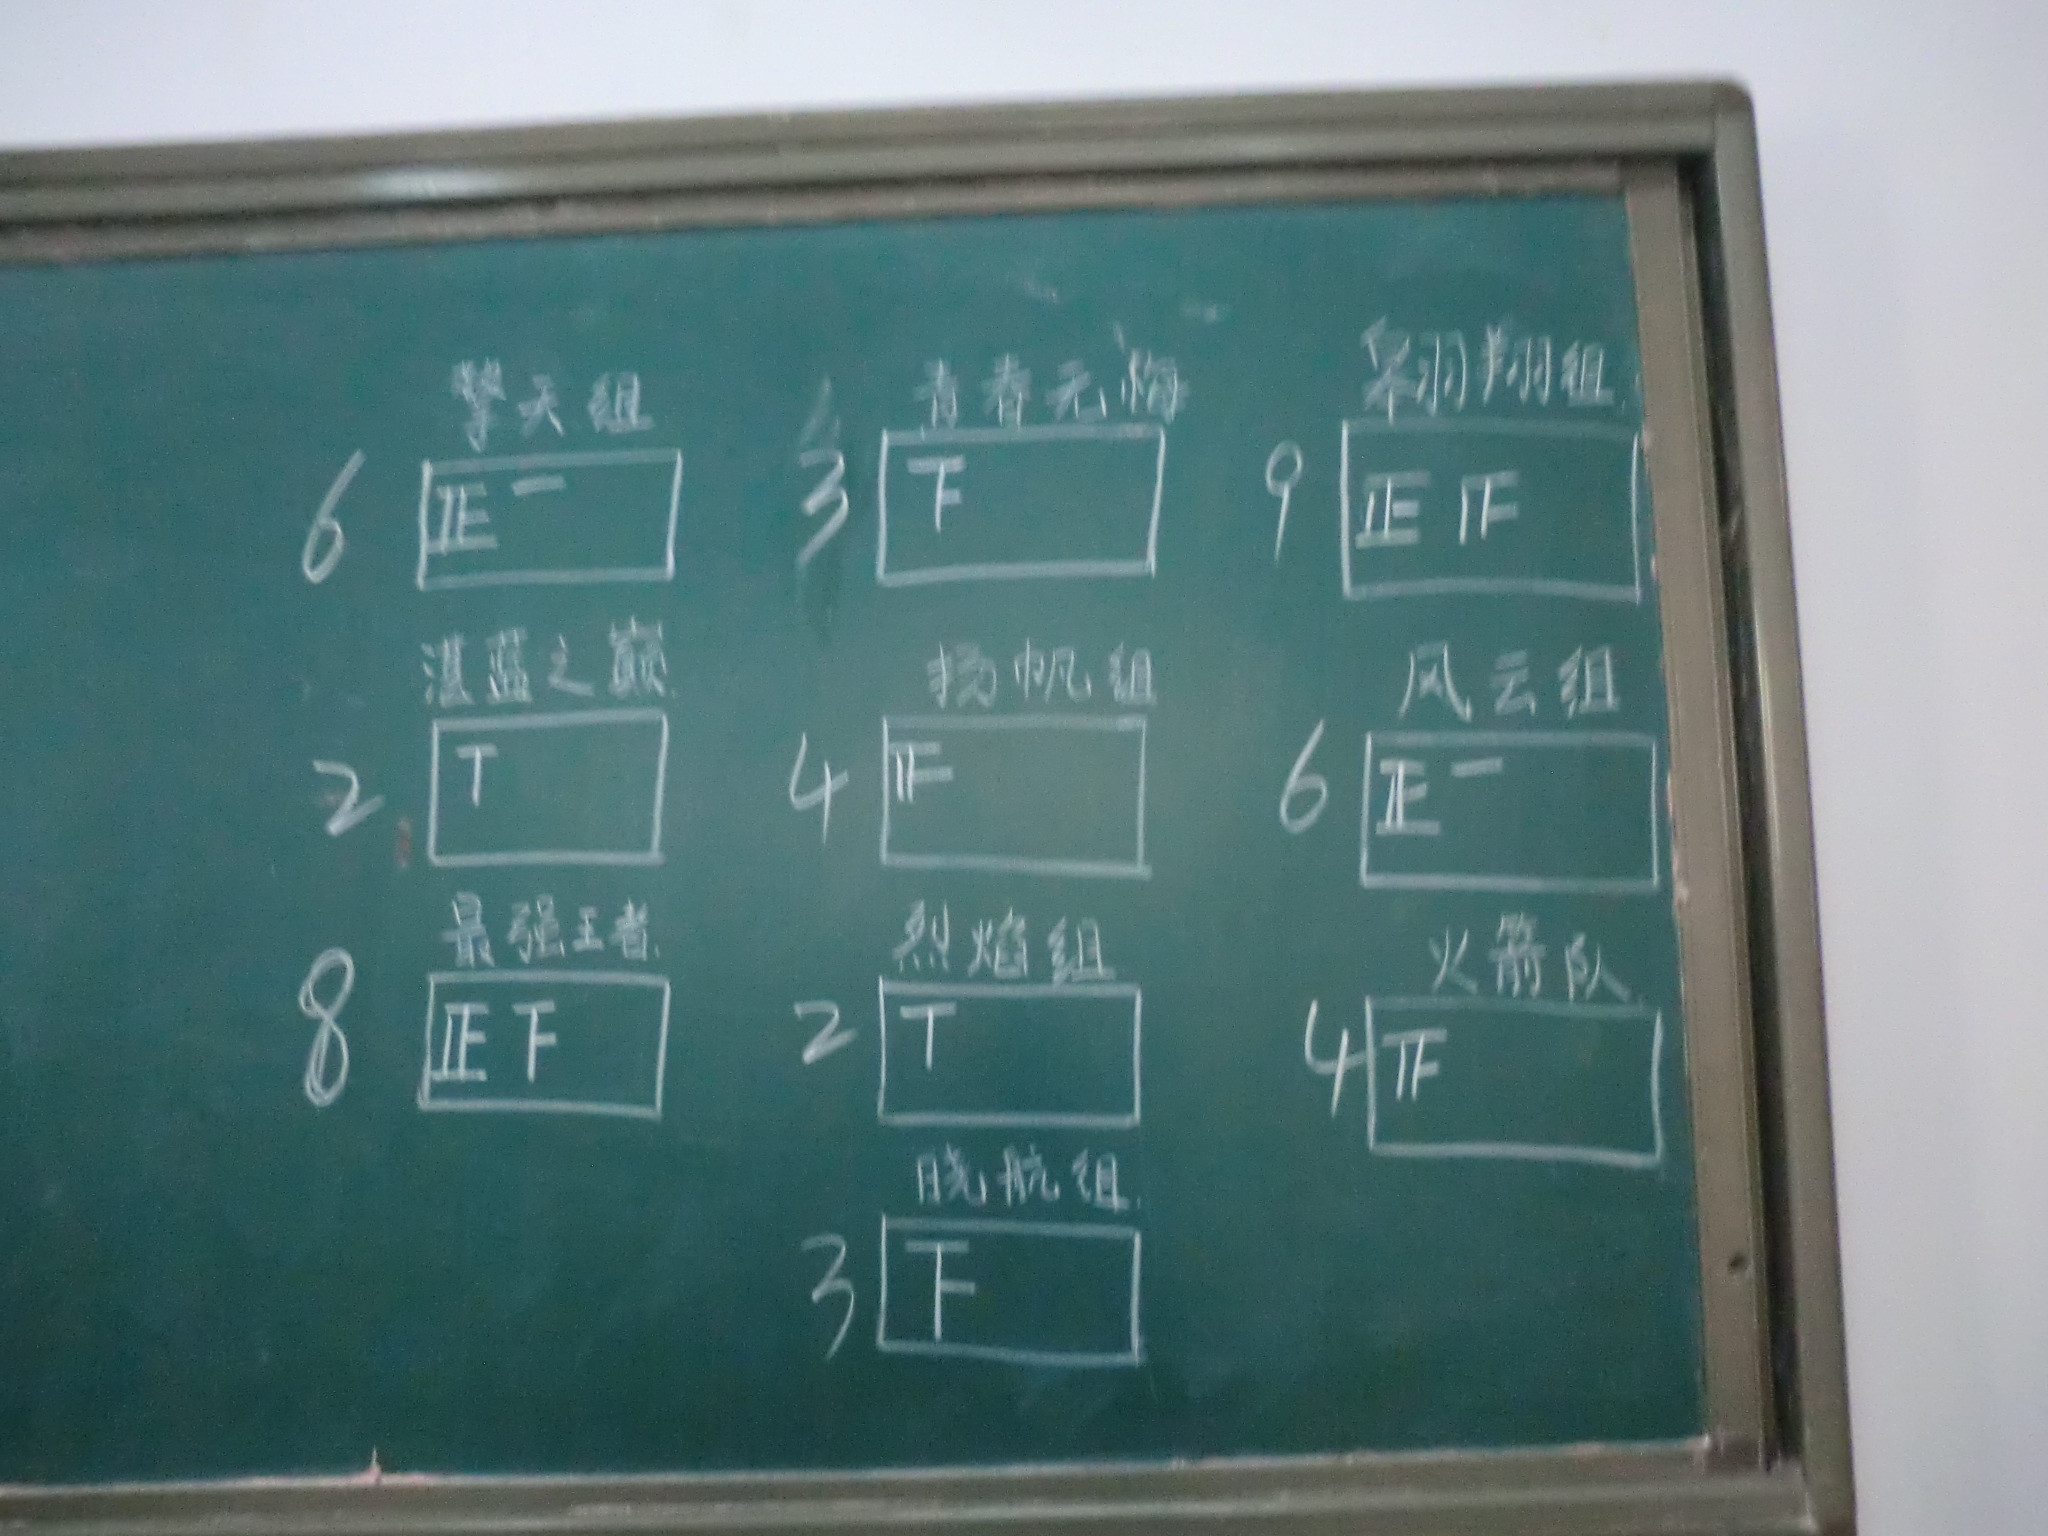 擎天组
6 正一
湛蓝之巅
2 丅
最强王者
8 正下
青春无悔
3 下
扬帆组
4
烈焰组
2 丅
晓航组
3 下
羽翔组
9 正
风云组
6 正一
火箭队
4